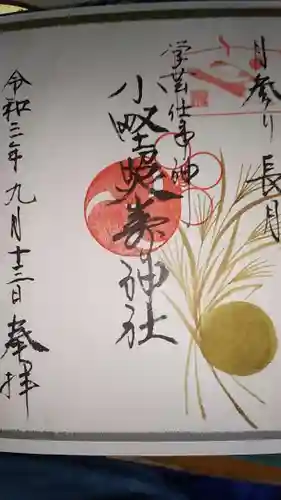 月参り 長月
学芸仕事神
小野照崎神社
令和三年九月十三日 奉拝